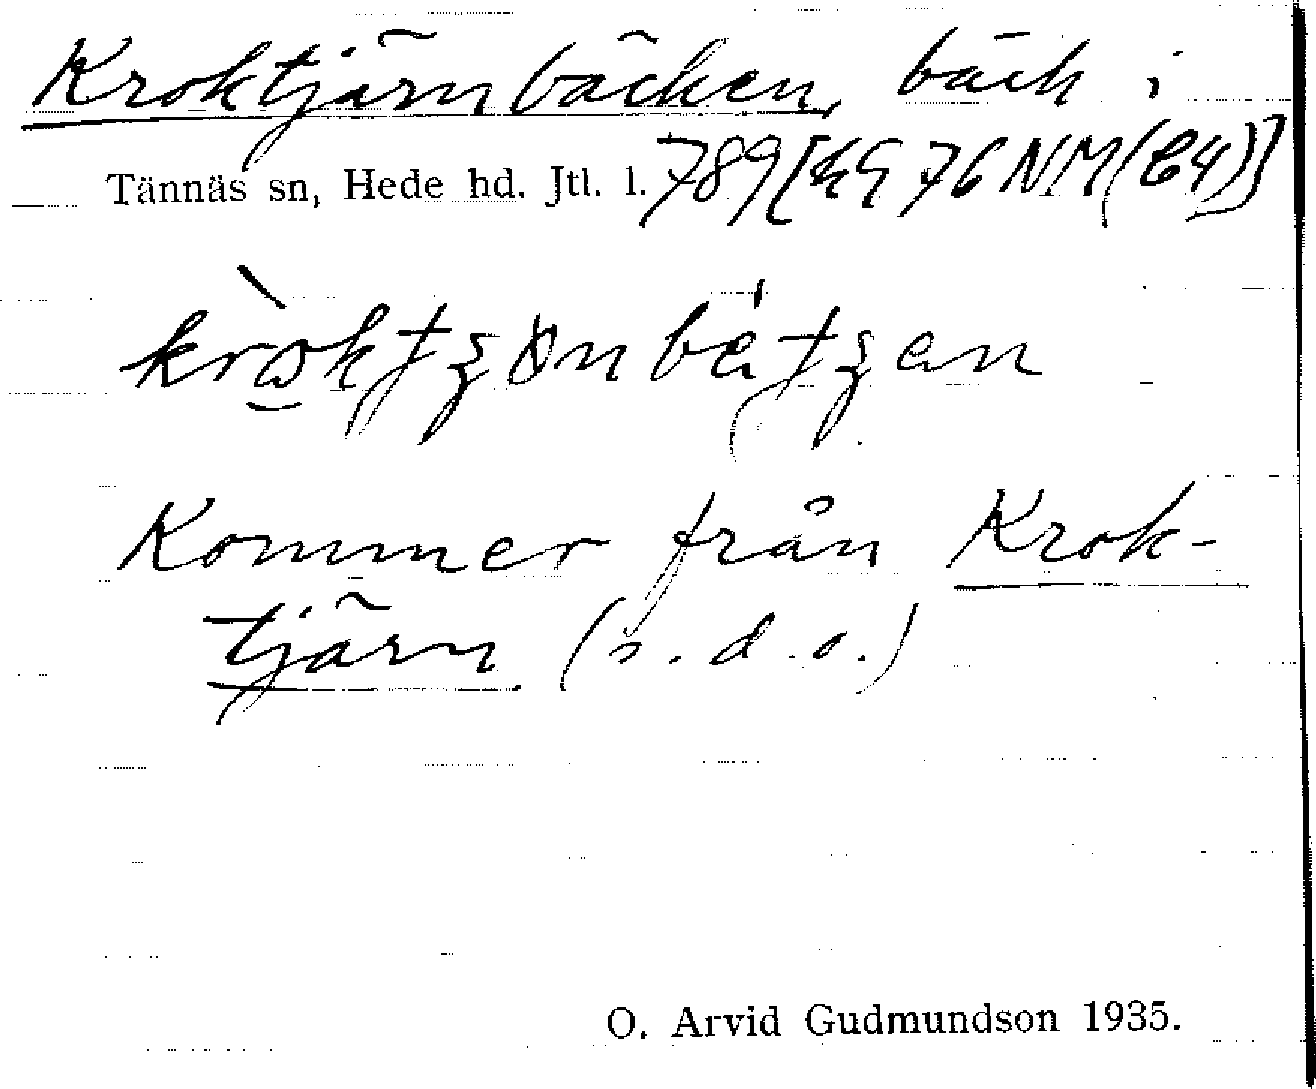 Kroktjärnbäcken, bäck i
Tännäs sn, Hede hd. Jtl. l. 789 [kG 76 NM (C4)]
Kommer från Krok-
tjärn (s.d.o.)
O. Arvid Gudmundson 1935.